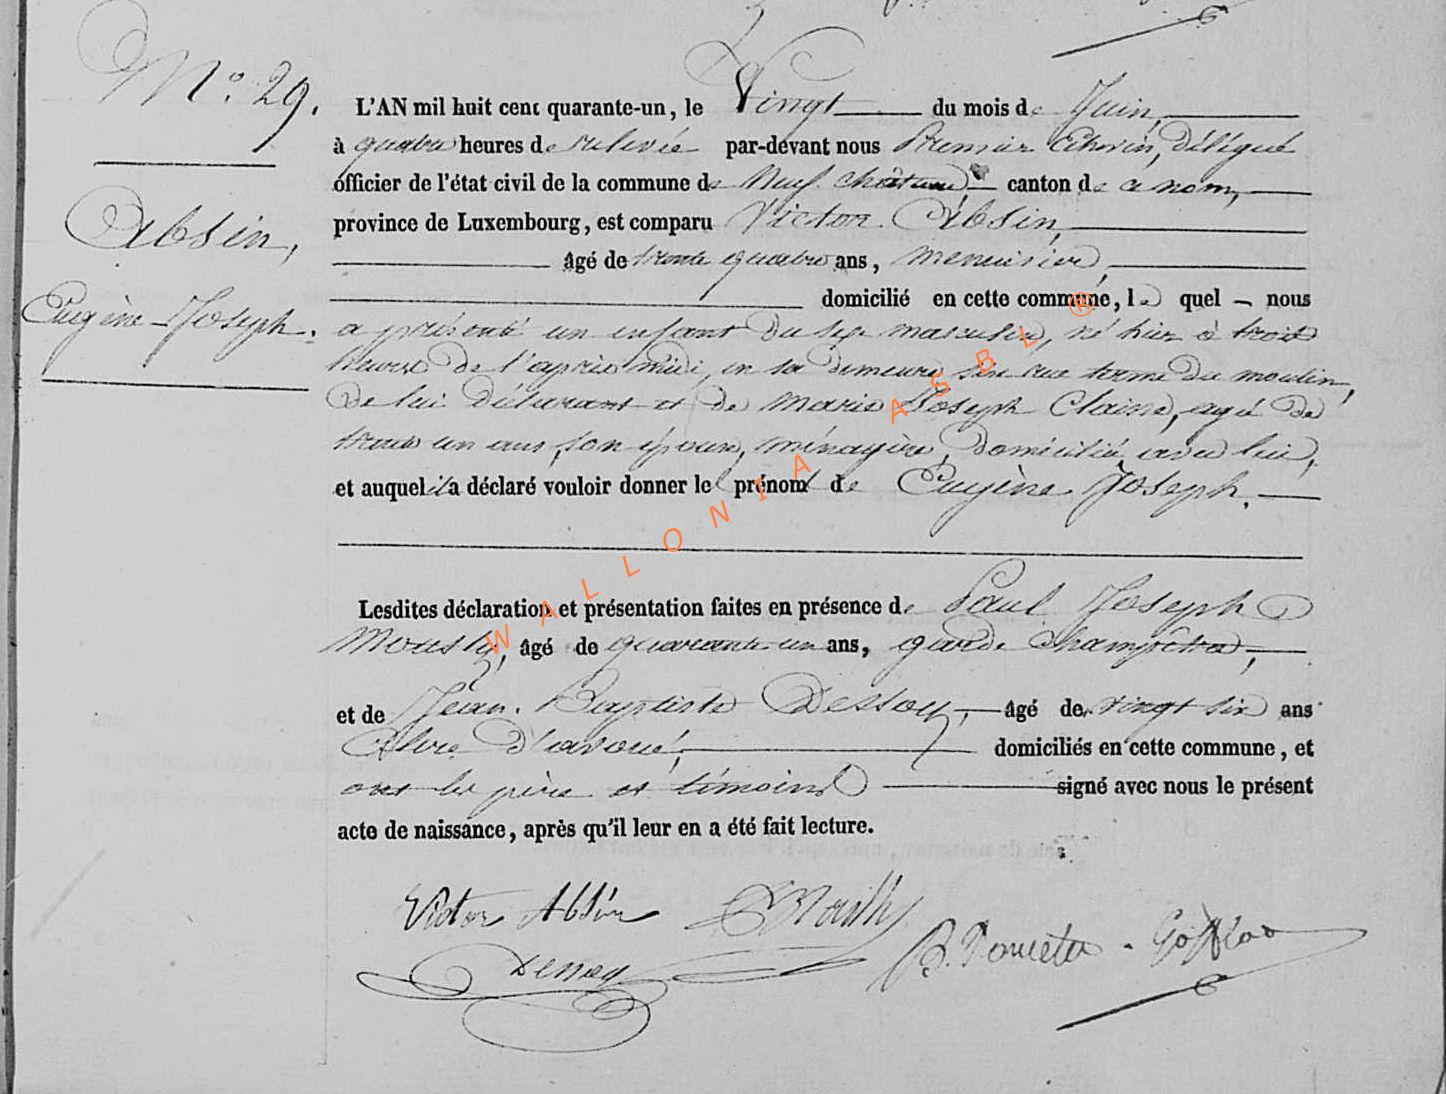 N.o 29.
Absin,
Eugène-Joseph.
L'AN mil huit cent quarante-un, le Vingt du mois de Juin,
à quatre heures de relevée par-devant nous Premier Echevin, délégué
officier de l'état civil de la commune de Neufchâteau, canton de ce nom,
province de Luxembourg, est comparu Victor Absin,
âgé de trente quatre ans, menuisier,
domicilié en cette commune, le quel nous
a présenté un enfant du sexe masculin, né hier à trois
heures de l'après midi, en sa demeure sise rue terme du moulin,
de lui déclarant et de Marie Joseph Claine, agée de
trente un ans, son épouse, ménagère, domiciliée avec lui,
et auquel il a déclaré vouloir donner le prénom de Eugène Joseph.
Lesdites déclaration et présentation faites en présence de Paul Joseph
âgé de quarante-un ans, garde champêtre,
et de Jean-Baptiste Dessoy, âgé de vingt six ans
Clerc d'avoué, domiciliés en cette commune, et
ont les père et témoins signé avec nous le présent
acte de naissance, après qu'il leur en a été fait lecture.
Victor Absin
WALLONIA ASBL ®